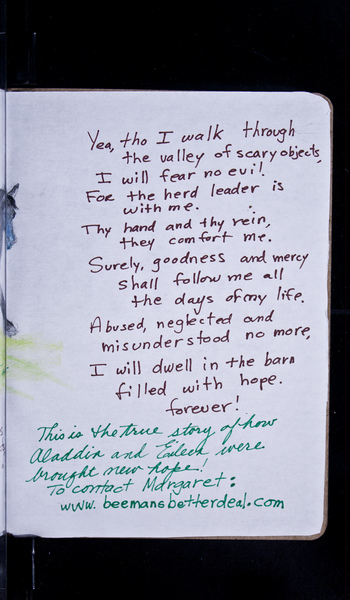 Yea, tho I walk through
the valley of scary objects,
I will fear no evil.
For the herd leader is
with me.
Thy hand and thy rein,
they comfort me.
Surely, goodness and mercy
shall follow me all
the days of my life.
Abused, neglected and
misunderstood no more,
I will dwell in the barn
filled with hope.
forever!
This is the true story of how
Aladdin and Eileen were
brought new hope!
To contact Margaret:
www.beemansbetterdeal.com